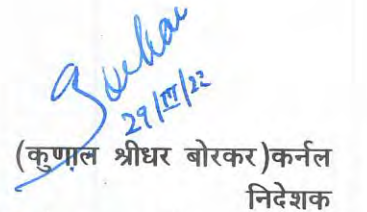 Borkar
29/III/22
(कुणाल श्रीधर बोरकर)कर्नल
निदेशक